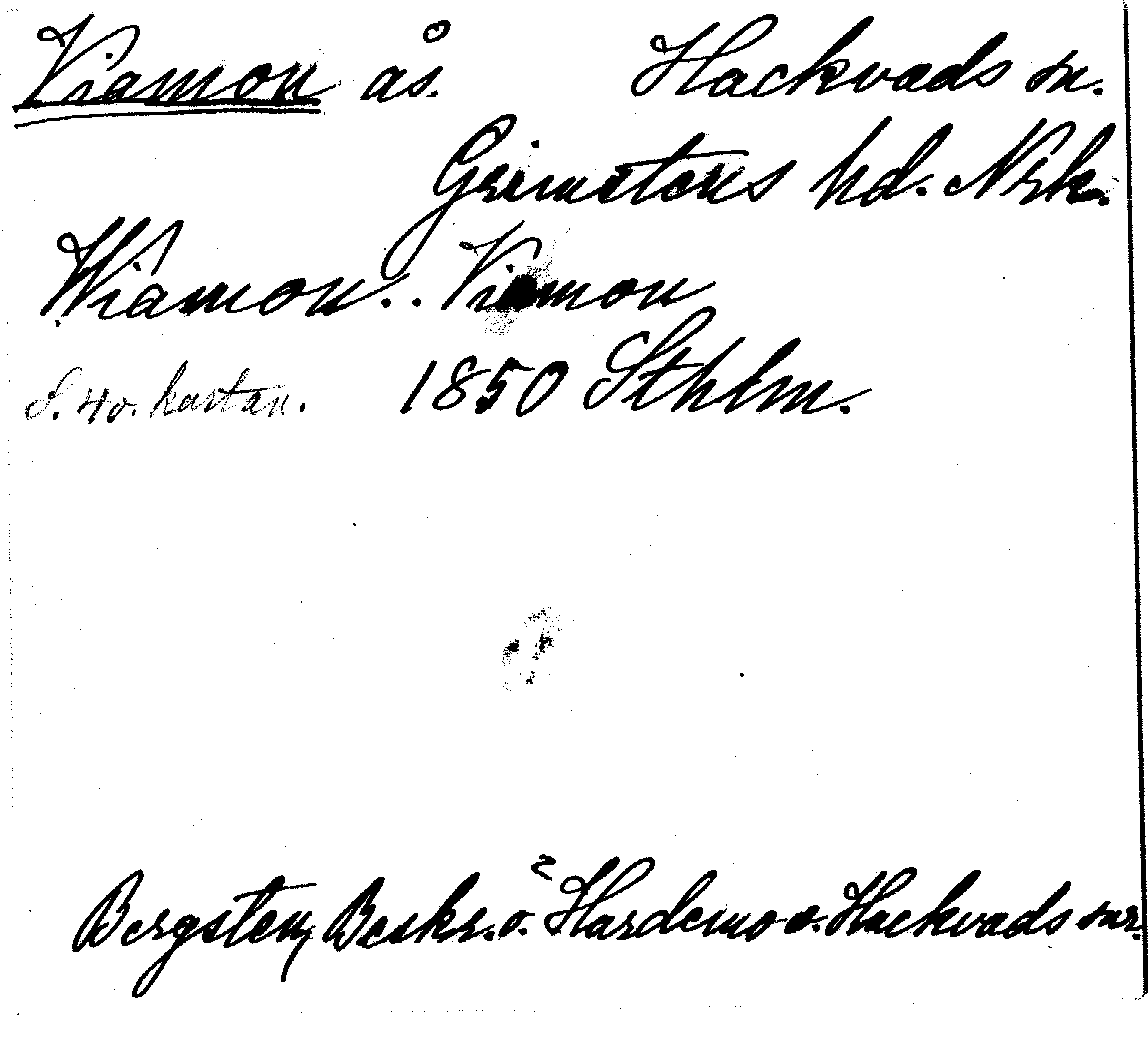 Viamon ås. Hackvads sn.
Grimstens hd. Nrk.
Wiamon.. Viamon
S. 40. kartan. 1850 Sthlm.
Bergsten, Beskr. ö. Hardemo o. Hackvads snr.